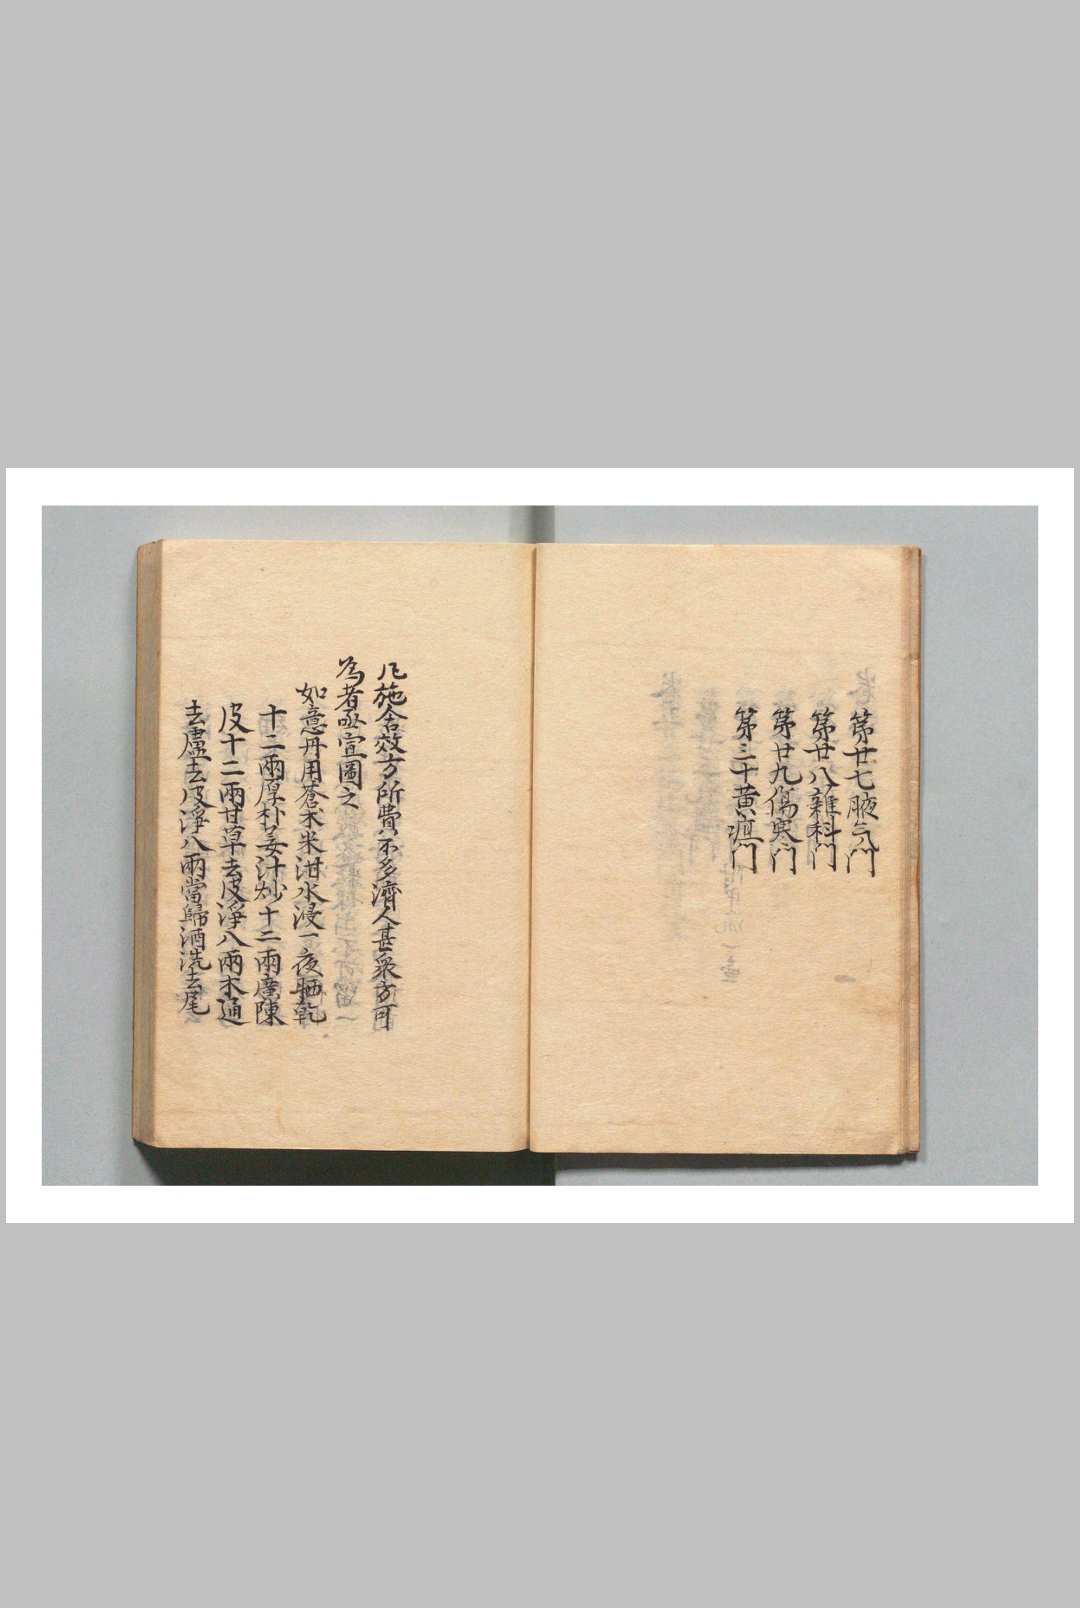 第廿七腋气门
第廿八雜科门
第廿九傷寒门
第三十黄疸门
凡施舍效方所費不多濟人甚衆方可
為者亟宣圖之
如意丹用蒼术米泔水浸一夜晒乾
十二兩厚朴姜汁炒十二兩廣陳
皮十二兩甘草去皮淨八兩木通
去盧去皮淨八兩當歸酒洗去尾